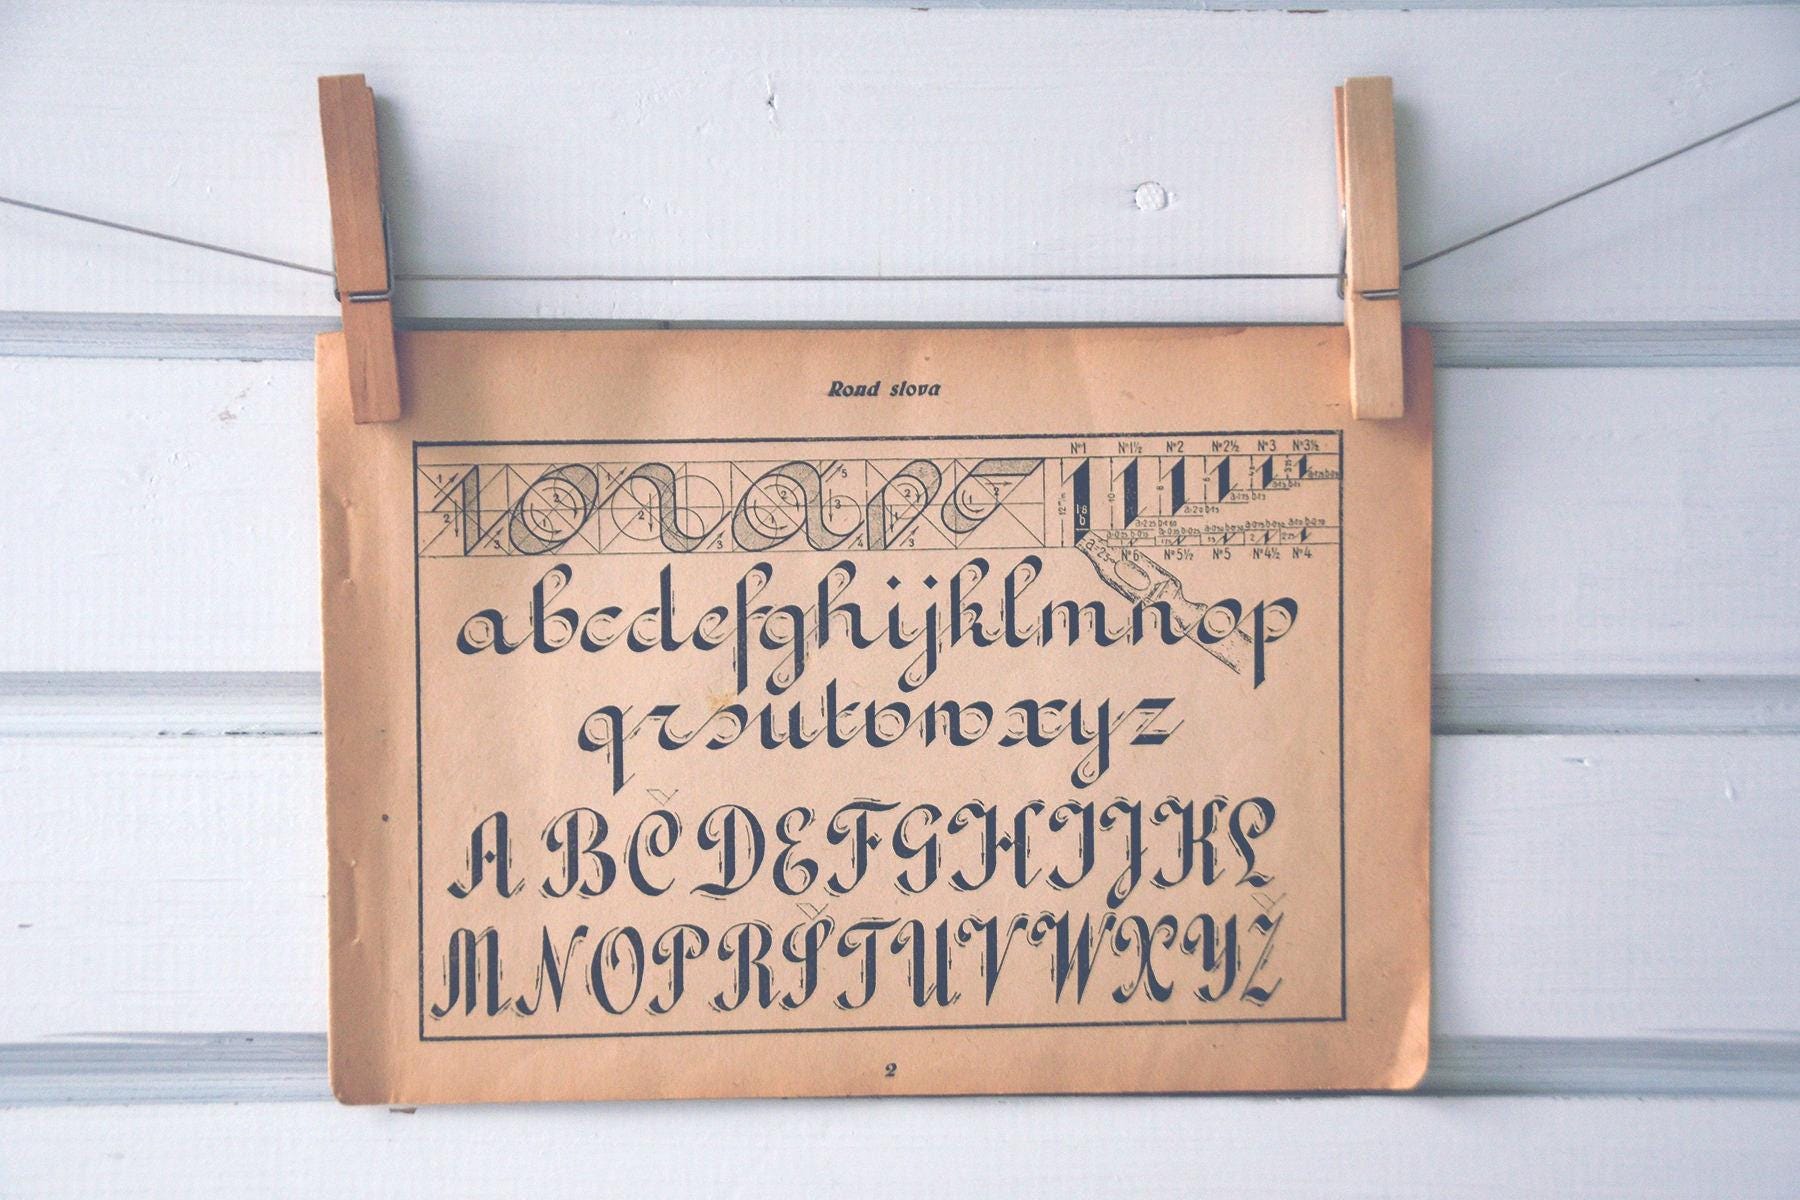 Rond slova
Nº1 Nº1½ Nº2 Nº2½ Nº3 Nº3½
Nº6 Nº5½ Nº5 Nº4½ Nº4
abcdefghijklmnop
qrsutvwxyz
ABČDEFGHIJKL
MNOPRŠTUVWXYŽ
2